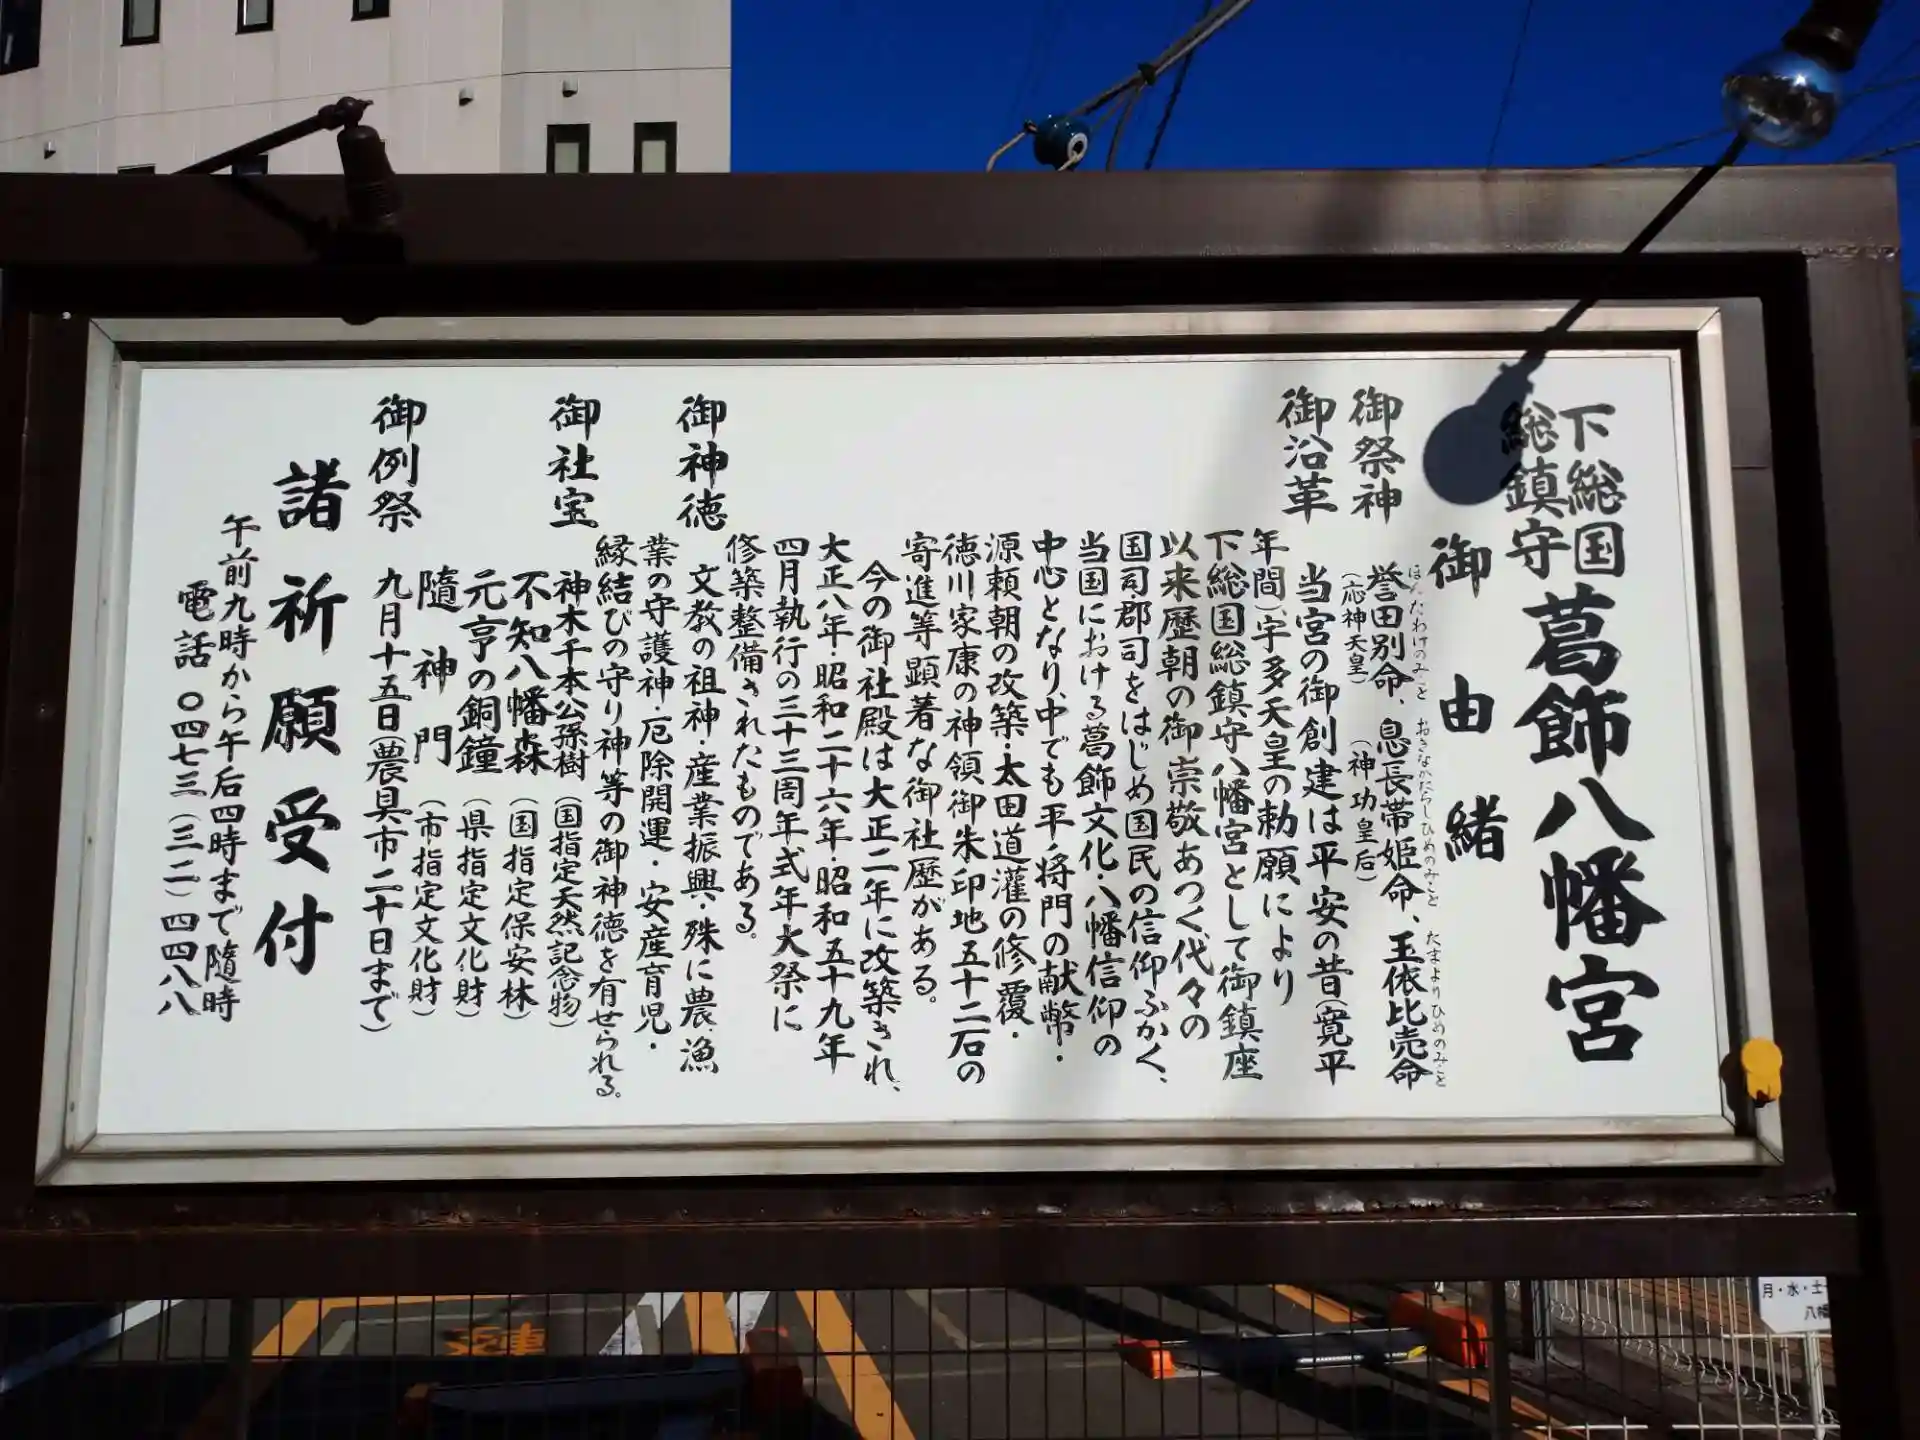 下総国
総鎮守
葛飾八幡宮
御由緒
御祭神
誉田別命、息長帯姫命、玉依比売命
ほんだわけのみこと おきながたらしひめのみこと たまよりひめのみこと
(応神天皇) (神功皇后)
御沿革
当宮の御創建は平安の昔(寛平
年間)、宇多天皇の勅願により
下総国総鎮守八幡宮として御鎮座
以来歴朝の御崇敬あつく代々の
国司・郡司をはじめ国民の信仰ふかく、
当国における葛飾文化・八幡信仰の
中心となり、中でも平ノ将門の献幣・
源頼朝の改築・太田道灌の修覆・
徳川家康の神領御朱印地五十二石の
寄進等顕著な御社歴がある。
今の御社殿は大正二年に改築され、
大正八年・昭和二十六年・昭和五十九年
四月執行の三十三周年式年大祭に
修築整備されたものである。
御神徳
文教の祖神・産業振興・殊に農、漁
業の守護神・厄除開運・安産育児・
縁結びの守り神等の御神徳を有せられる。
御社宝
神木千本公孫樹(国指定天然記念物)
不知八幡森(国指定保安林)
元亨の銅鐘(県指定文化財)
隨神門(市指定文化財)
御例祭
九月十五日(農具市二十日まで)
諸祈願受付
午前九時から午后四時まで隨時
電話 〇四七三(三二)四四八八
月・水・土
八幡